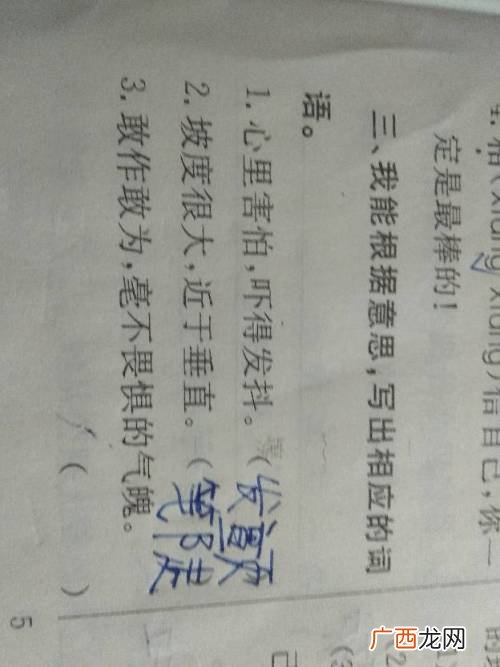 4.相(xiāng xiàng)信自己,你一
定是最棒的!
三、我能根据意思,写出相应的词
语。
1.心里害怕,吓得发抖。(发颤
2.坡度很大,近于垂直。(笔陡
3.敢作敢为,毫不畏惧的气魄。
( )
5
广西龙网